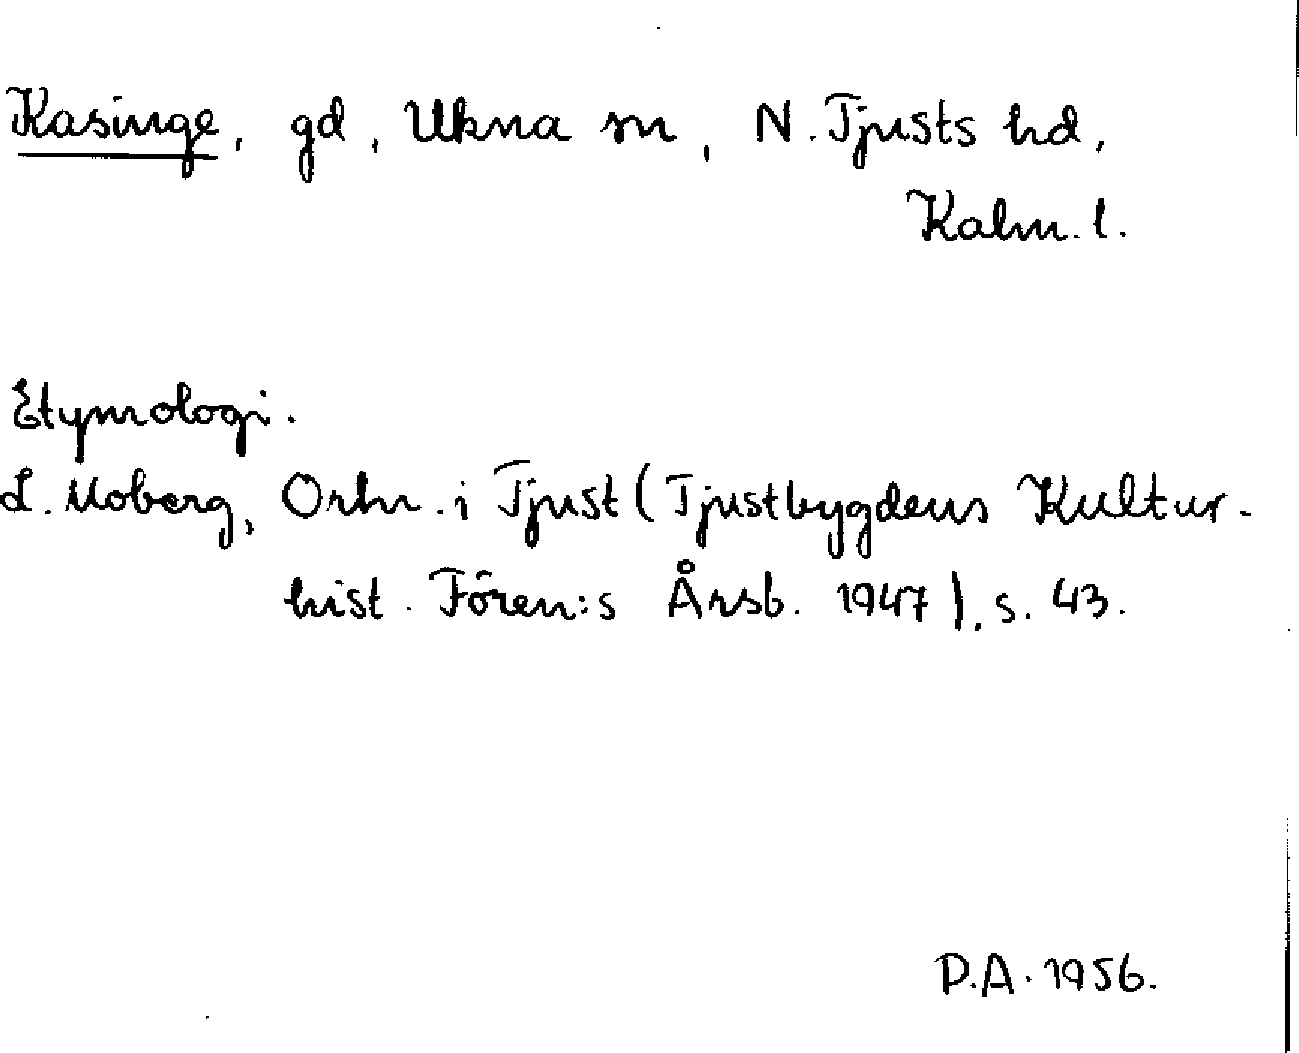 Kasinge, gd, Ukna sn, N. Tjusts hd,
Kalm. l.
Etymologi.
L. Moberg, Ortn. i Tjust (Tjustbygdens Kultur-
hist. Fören:s Årsb. 1947), s. 43.
P.A. 1956.